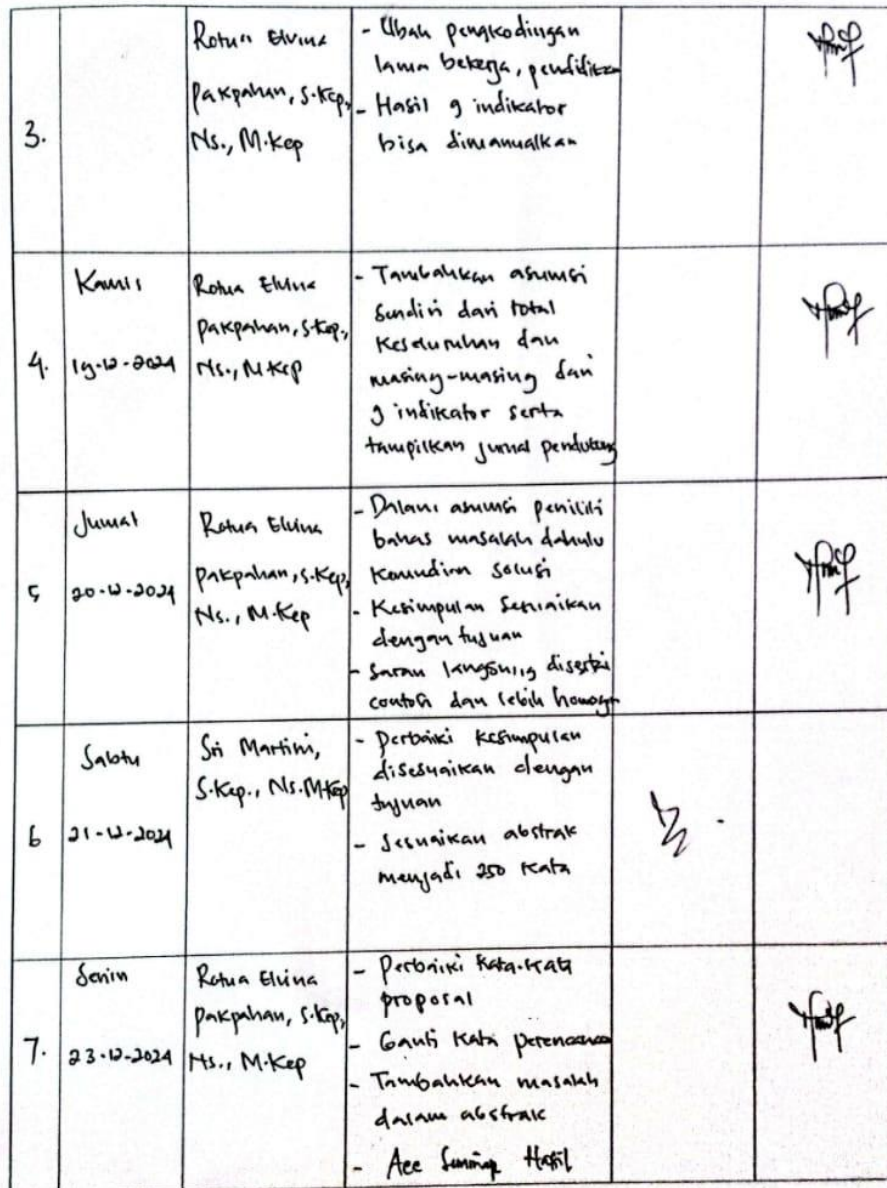 3.
Rotua Elvina
Pakpahan, S.Kep.,
Ns., M.Kep
- Ubah pengkodingan
lama bekerja, pendidikan
- Hasil 9 indikator
bisa dimanualkan
4.
Kamis
19-12-2024
Rotua Elvina
Pakpahan, S.Kep.,
Ns., M.Kep
- Tambahkan asumsi
sendiri dari total
Keseluruhan dan
masing-masing dari
9 indikator serta
tampilkan jurnal pendukung
5
Jumat
20-12-2024
Rotua Elvina
Pakpahan, S.Kep,
Ns., M.Kep
- Dalam asumsi peniliti
bahas masalah dahulu
Kemudian solusi
- Kesimpulan Sesuaikan
dengan tujuan
- Saran langsung disertai
contoh dan lebih homogen
6
Sabtu
21-12-2024
Sri Martini,
S.Kep., Ns.M.Kep
- Perbaiki Kesimpulan
disesuaikan dengan
tujuan
- Sesuaikan abstrak
menjadi 250 Kata
7.
Senin
23-12-2024
Rotua Elvina
Pakpahan, S.Kep,
Ns., M.Kep
- Perbaiki Kata-Kata
proposal
- Ganti Kata
- Tambahkan masalah
dalam abstrak
- Acc Hasil